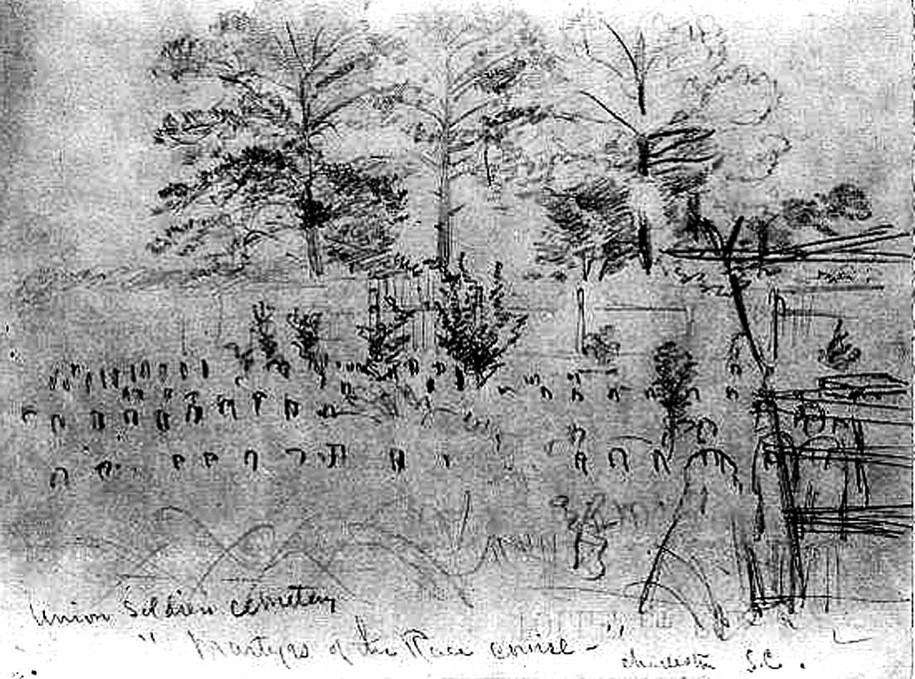 Union Soldiers cemetery
"Martyrs of the Race course -"
charleston S.C.